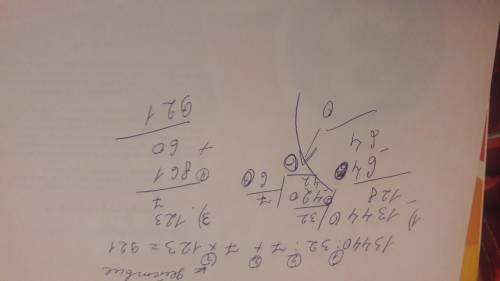 * действие
13440:32:7+7×123=921
1) 13440 | 32
128 | 420
64
64
0
420 | 7
42 | 60
0
3) 123
7
861
+ 60
921